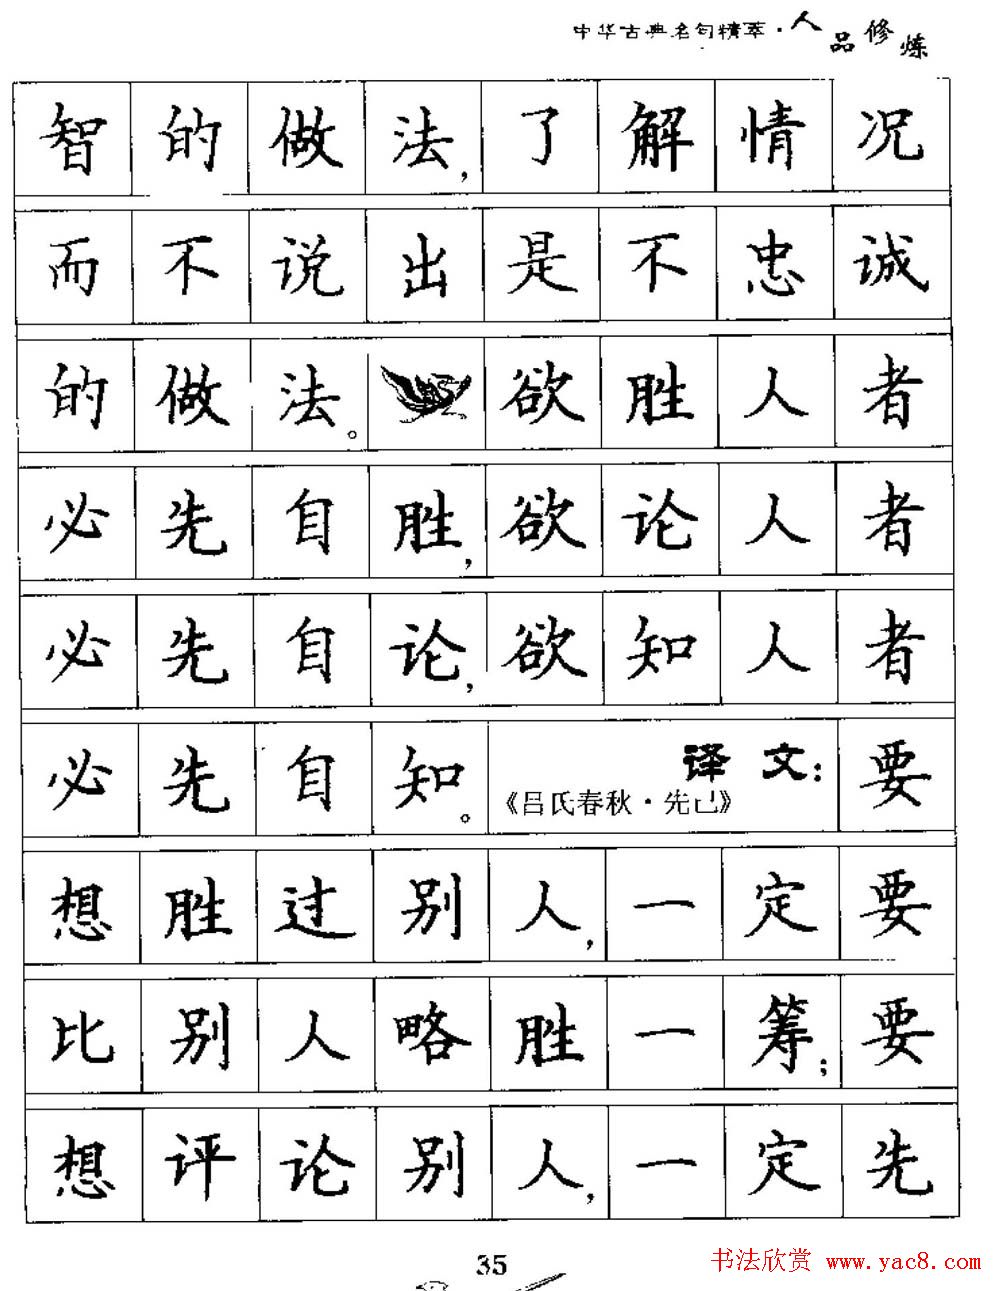 中华古典名句精萃·人品修炼
智的做法，了解情况
而不说出是不忠诚
的做法。欲胜人者
必先自胜，欲论人者
必先自论，欲知人者
必先自知。《吕氏春秋·先己》译文：要
想胜过别人，一定要
比别人略胜一筹；要
想评论别人，一定先
35
书法欣赏 www.yac8.com